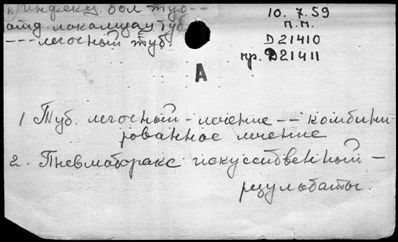 п) инфекц. бол туб --
отд локализац туб.
--- легочный туб.
10.7.59
п.м.
D21410
пр. D21411
A
1 Туб. легочный - лечение -- комбини
рованное лечение
2. Пневмоторакс искусственный -
результаты.